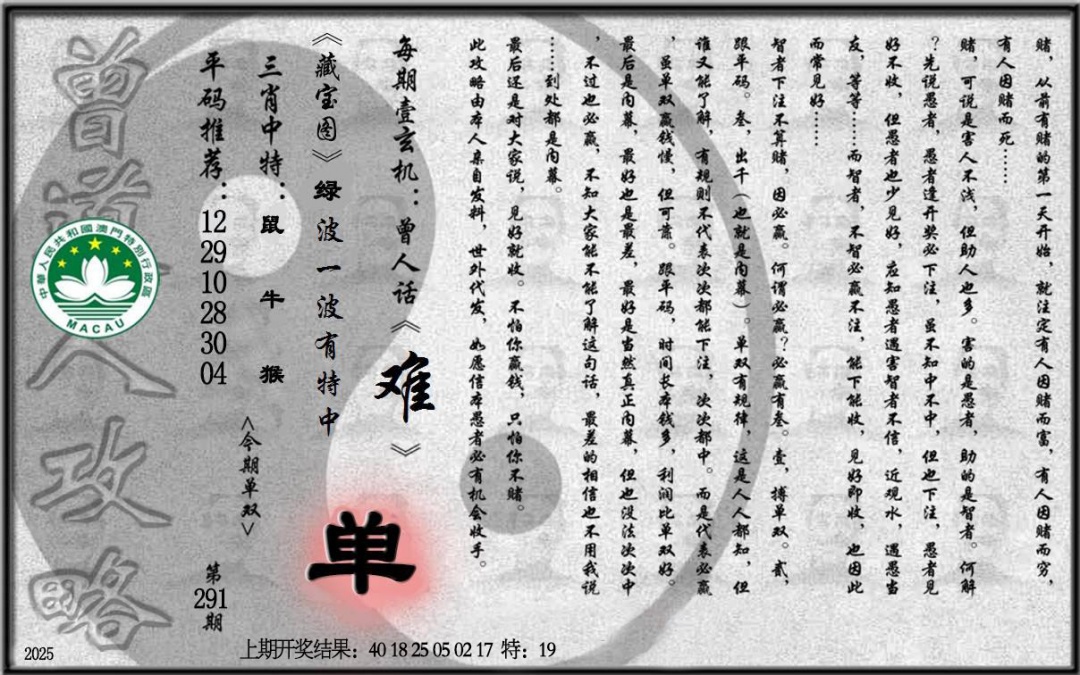 赌，从前有赌的第一天开始，就注定有人因赌而富，有人因赌而穷，
有人因赌而死……
赌，可说是害人不浅，但助人也多。害的是愚者，助的是智者。何解
？先说愚者，愚者逢开奖必下注，虽不知中不中，但也下注，愚者见
好不收，但愚者也少见好，应知愚者遇害智者不信，近观水，遇愚当
友，等等……而智者，不智必赢不注，能下能收，见好即收，也因此
而常见好……
智者下注不算赌，因必赢。何谓必赢？必赢有叁。壹，搏单双。贰，
跟单码。叁，出千（也就是内幕）。单双有规律，这是人人都知，但
谁又能了解，有规则不代表次次都能下注，次次都中。而是代表必赢
，虽单双赢钱慢，但可靠。跟单码，时间长本钱多，利润比单双好。
最后是内幕，最好也是最差，最好是当然真正内幕，但也没法次次中
，不过也必赢，不知大家能不能了解这句话，最差的相信也不用我说
……到处都是内幕。
最后还是对大家说，见好就收。不怕你赢钱，只怕你不赌。
此攻略由本人亲自发料，世外代发，如愿信本愚者必有机会收手。
每期壹玄机：曾人话《难》
《藏宝图》绿波一波有特中
单
三肖中特：鼠 牛 猴
<今期单双>
平码推荐：12 29 10 28 30 04
第291期
曾道人攻略
中華人民共和國澳門特別行政區
MACAU
2025
上期开奖结果：40 18 25 05 02 17 特：19